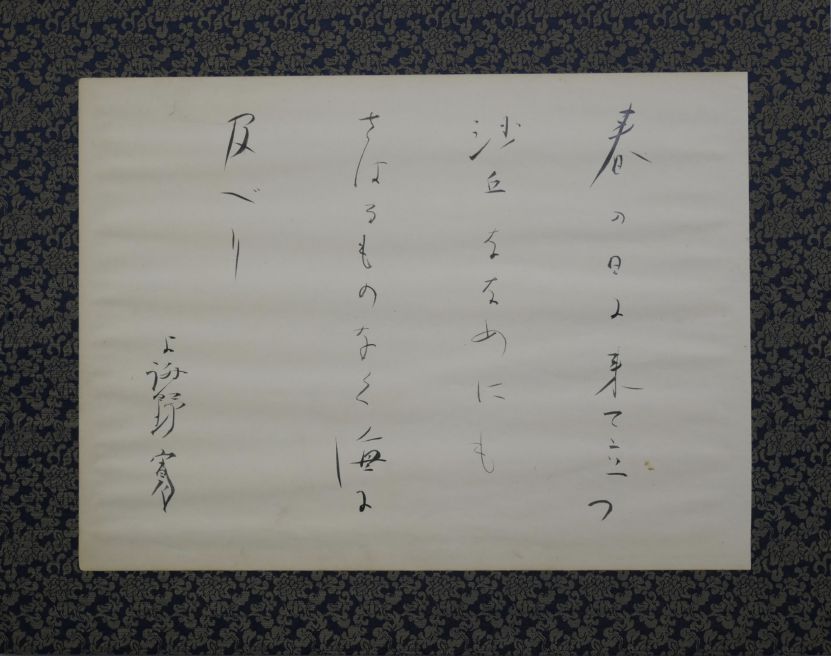 春の日に来て立つ
沙丘なゝめにも
さはるものなく海に
及べり
與謝野寛